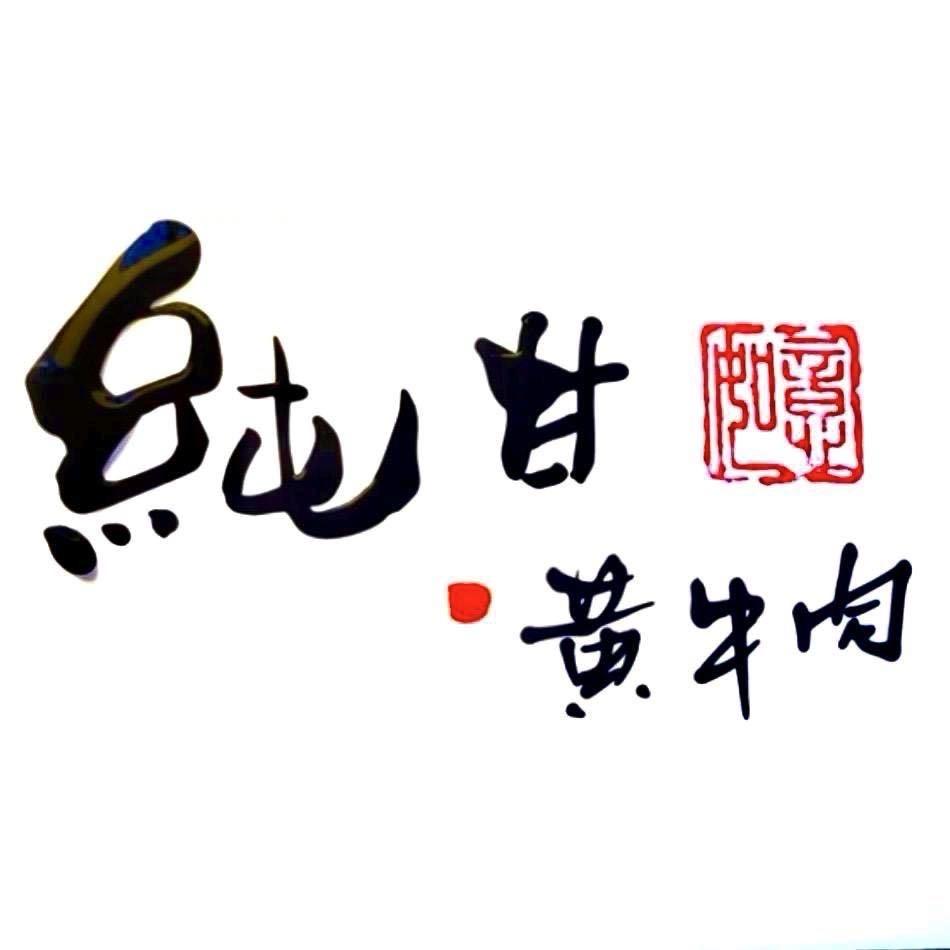 純甘
黄牛肉